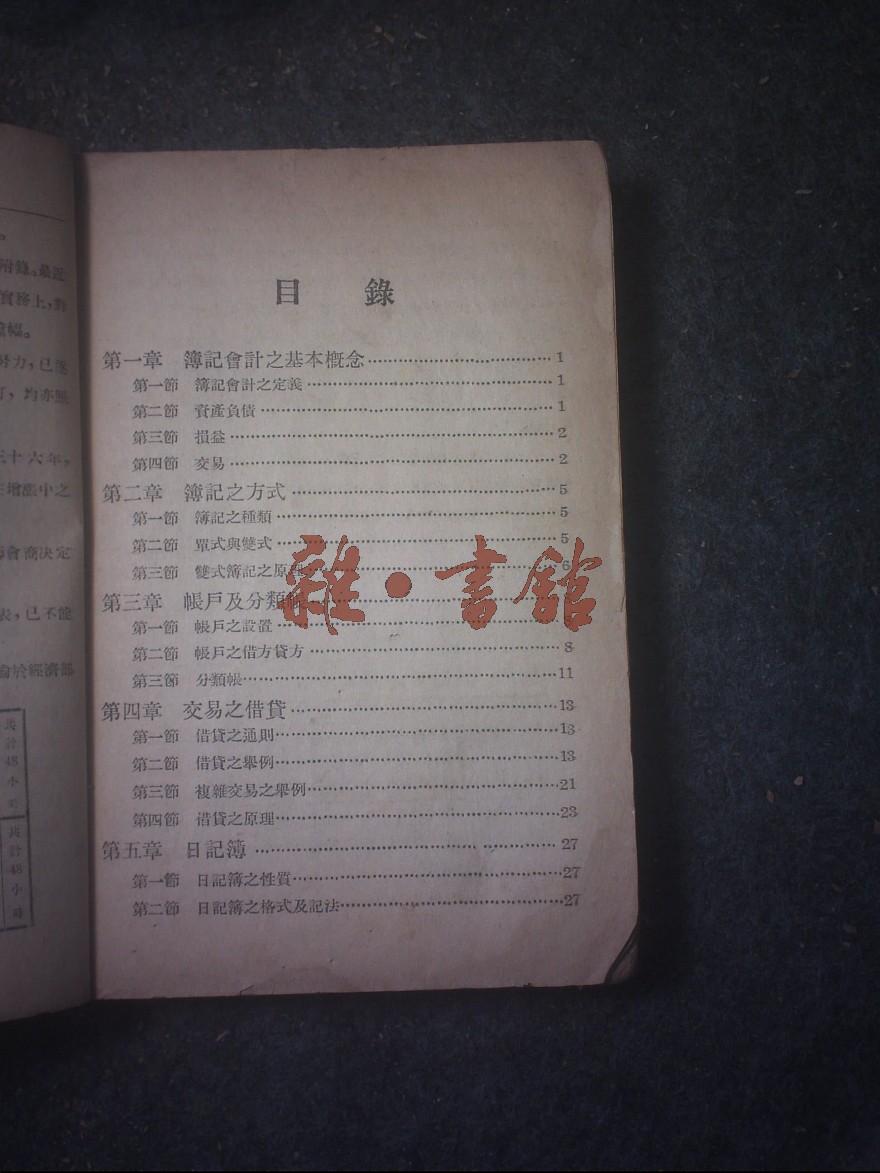 目 錄
第一章 簿記會計之基本概念 1
第一節 簿記會計之定義 1
第二節 資產負債 1
第三節 損益 2
第四節 交易 2
第二章 簿記之方式 5
第一節 簿記之種類 5
第二節 單式與雙式 5
第三節 雙式簿記之原理 6
第三章 帳戶及分類帳
第一節 帳戶之設置
第二節 帳戶之借方貸方 8
第三節 分類帳 11
第四章 交易之借貸 13
第一節 借貸之通則 13
第二節 借貸之舉例 13
第三節 複雜交易之舉例 21
第四節 借貸之原理 23
第五章 日記簿 27
第一節 日記簿之性質 27
第二節 日記簿之格式及記法 27
雜·書館
附錄。最近
實務上,對
努力,已逐
訂,均亦照
三十六年,
增漲中之
會商決定
表,已不能
於經濟部
計
48
小
計
48
小
時